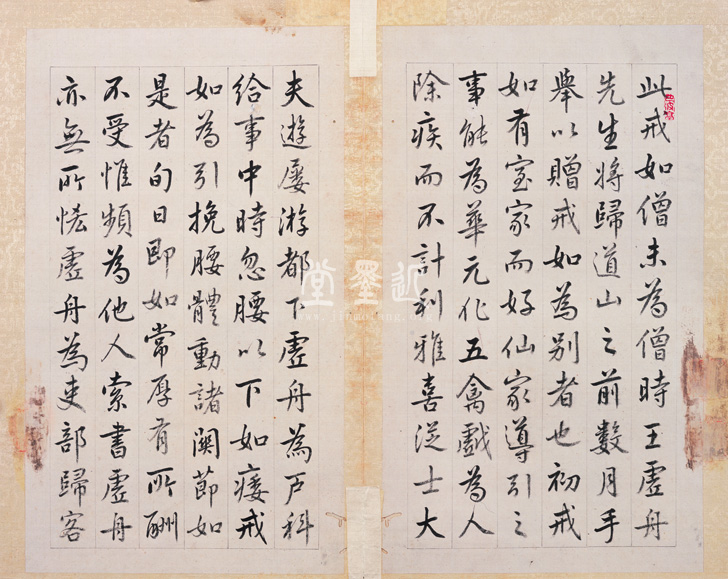 此戒如僧未為僧時王虛舟
先生將歸道山之前數月手
舉以贈戒如為別者也初戒
如有室家而好仙家導引之
事能為華元化五禽戲為人
除疾而不計利雅喜從士大
夫遊屢游都下虛舟為戶科
給事中時忽腰以下如痿戒
如為引挽腰體動諸關節如
是者旬日即如常厚有所酬
不受惟頻為他人索書虛舟
亦無所恡虛舟為吏部歸客
近墨堂
www.jinmotang.org